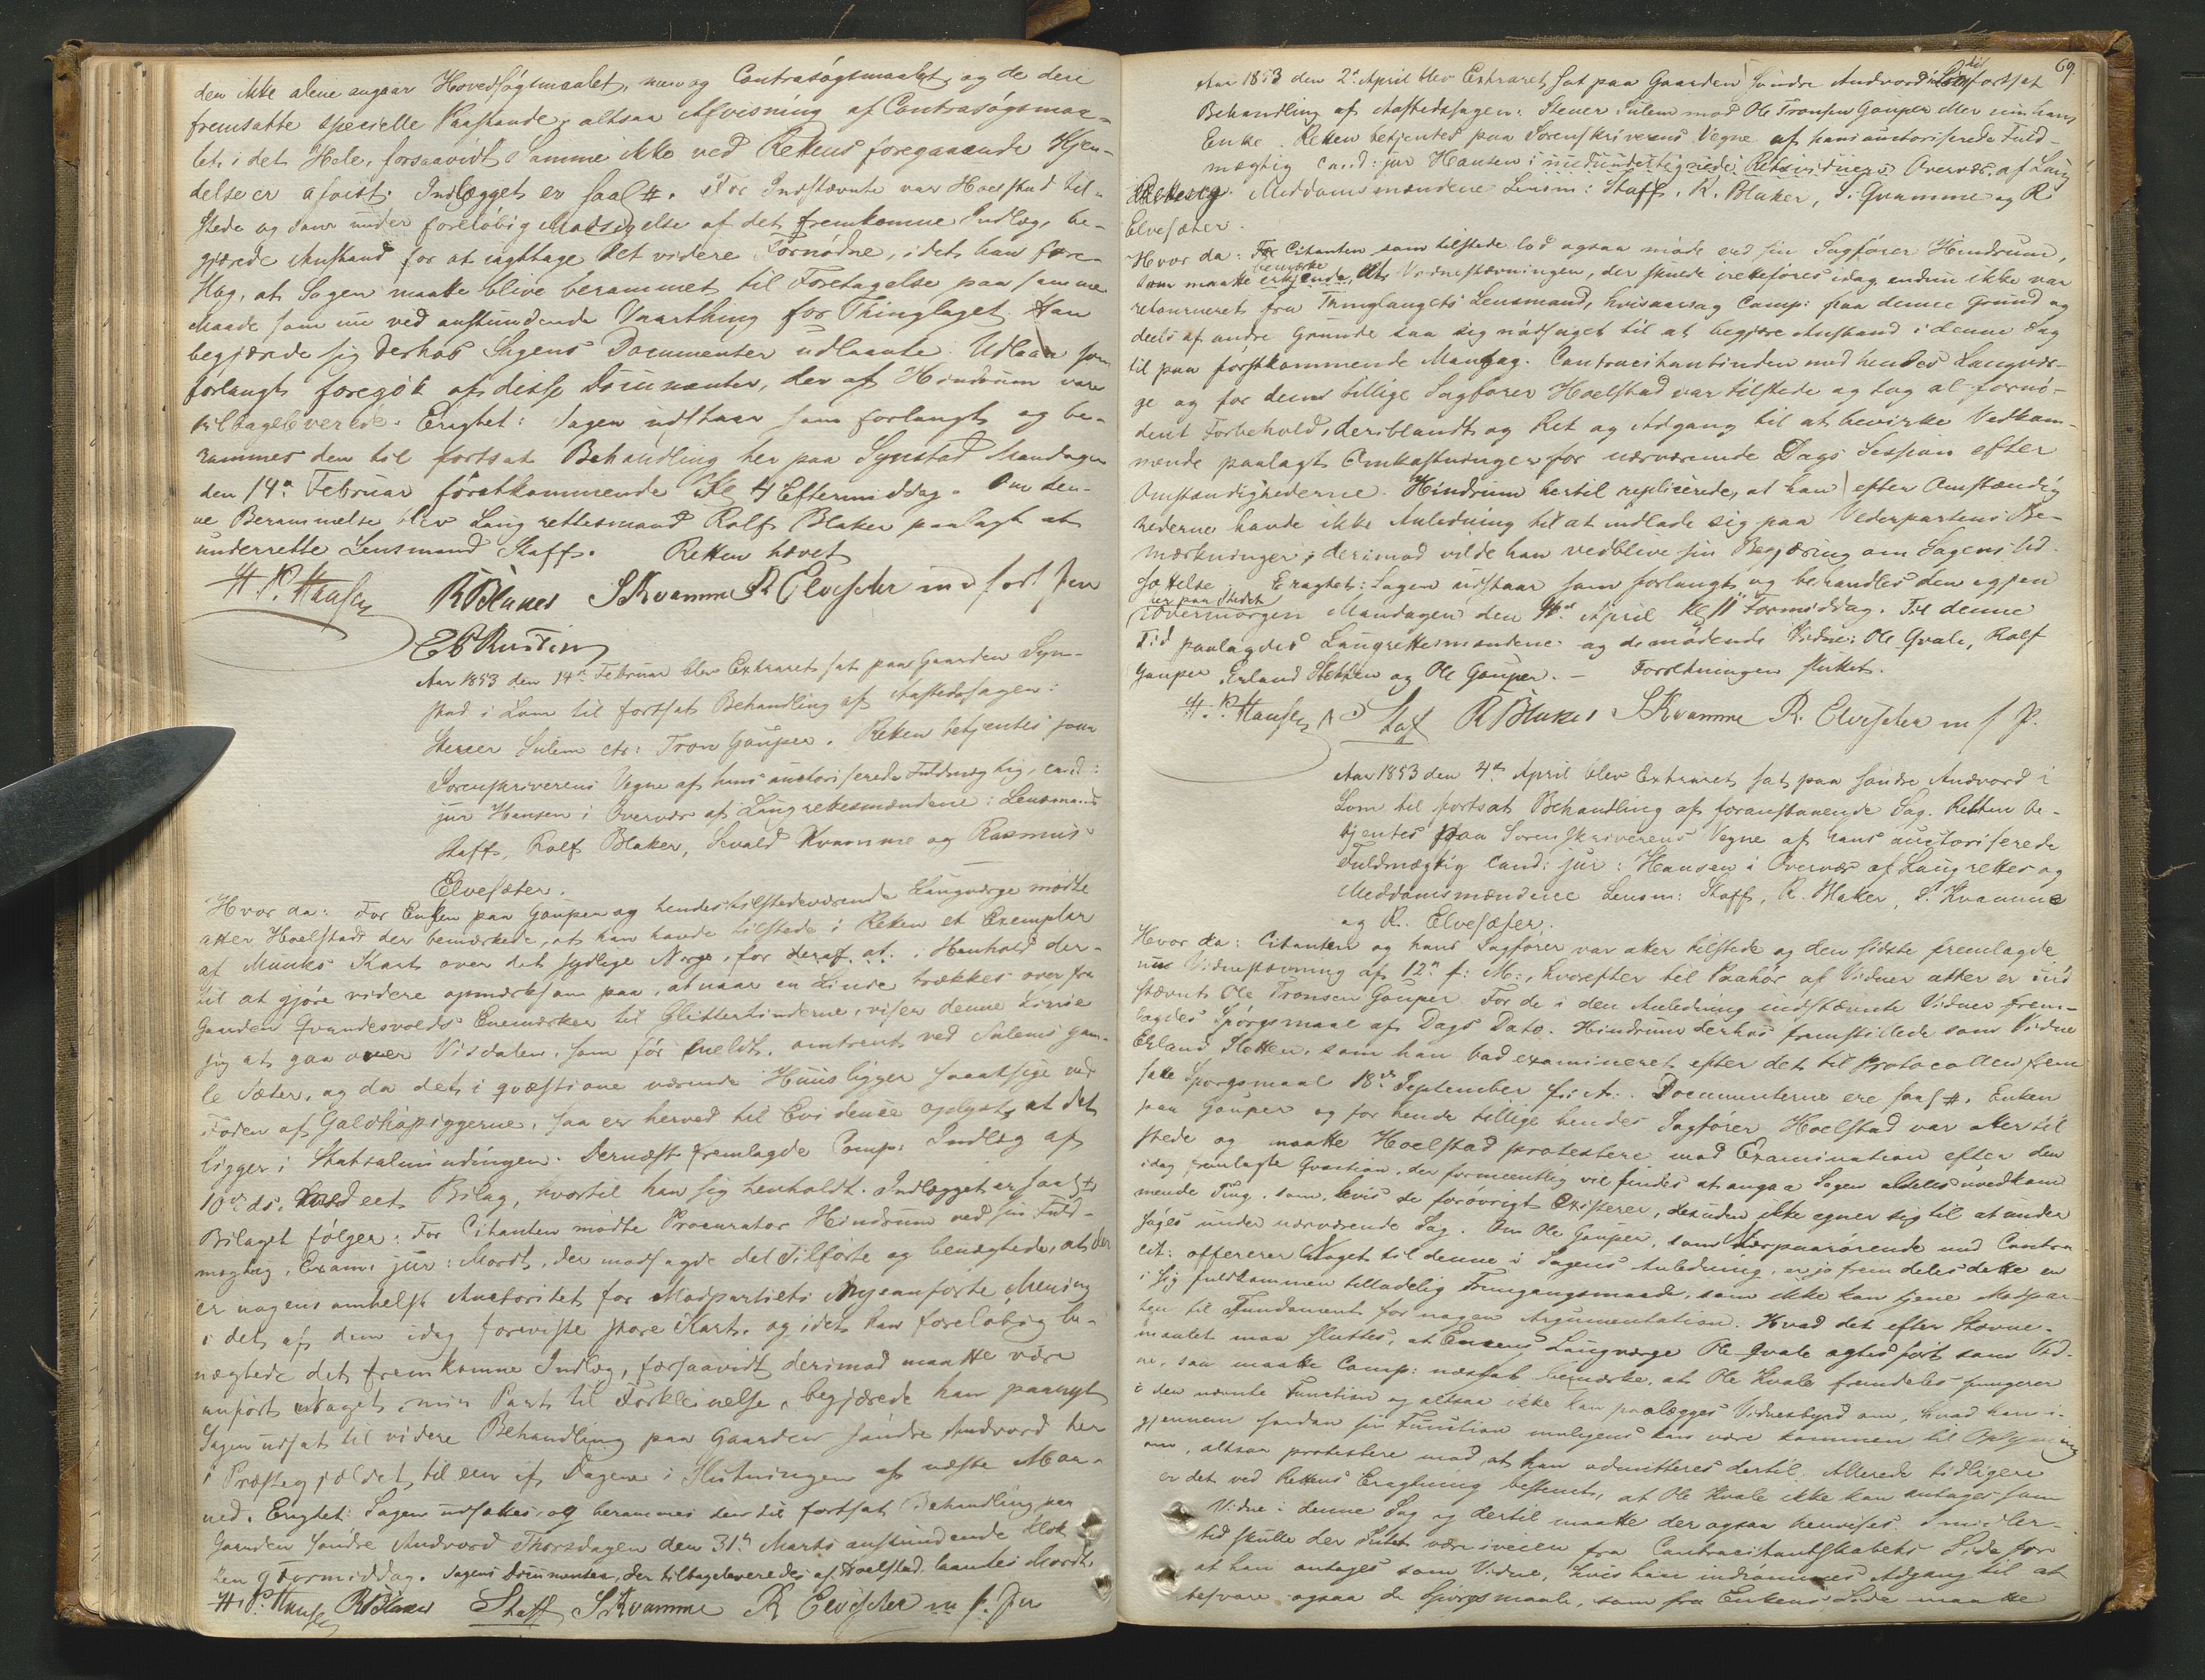 den ikke alene angaar Hovedsøgsmaalet, men og Contrasøgsmaalet, og de deri
fremsatte specielle Paastande, altsaa Afvisning af Contrasøgsmaa-
let i det Hele, forsaavidt Samme ikke ved Rettens foregaaende Kjen-
delse er afvist. Indlægget er saal #. For Indstævnte var Hoelstad til-
stede og han under foreløbig Modsigelse af det fremkomne Indlæg, be-
gjærede Anstand for at iagttage det videre Fornødne, idet han fore-
slog, at Sagen maatte blive berammet til Foretagelse paa samme
Maade som nu ved anstundende Vaarthing for Thinglaget. Han
begjærede sig derhos Sagens Documenter udlaante. Udlaan som
forlangt foregik af disse Documenter, der af Hindrum vare
tilbageleverede. Eragtet: Sagen udstaar som forlangt og be-
rammes den til fortsat Behandling her paa Synstad Mandagen
den 14de Februar førstkommende Kl 4 Eftermiddag. Om den-
ne Berammelse blev Laugrettesmand Rolf Blaker paalagt at
underrette Lensmand Staff. Retten hævet
H. P. Hansen RBlaker SKvamme R Elvesæter m f Pen
Aar 1853 den 14de Februar blev Extraret sat paa Gaarden Syn-
stad i Lom til fortsat Behandling af Aastedssagen:
Stener Sulem ctr: Tron Gaupen. Retten betjentes paa
Sorenskriverens Vegne af hans auctoriserede Fuldmægtig, cand:
jur Hansen i Overvær af Laugrettesmændene: Lensmand
Staff, Rolf Blaker, Sevald Kvamme og Rasmus
Elvesæter.
Hvor da: For Enken paa Gaupen og hendes tilstedeværende Laugværge mødte
atter Hoelstad der bemærkede, at han havde tilstede i Retten et Exemplar
af Munks Kart over det sydlige Norge, for deraf at i Henhold der-
til at gjøre videre opmærksom paa, at naar en Linie trækkes over fra
Gaarden Qvandesvolds Enemærker til Glittertinderne, viser denne Linie
sig at gaa over Visdalen, som før meldt, omtrent ved Sulems gam-
le Sæter, og da det i qvæstione værende Huus ligger saaatsige ved
Foden af Galdhøpiggerne, saa er herved til Evidence oplyst, at det
ligger i Statsalmindingen. Dernæst fremlagde Comp: Indlæg af
10de ds. med eet Bilag, hvortil han sig henholdt. Indlægget er saal #
Bilaget følger: For Citanten mødte Procurator Hindrum ved sin Fuld-
mægtig, Exam: jur: Mordt, der modsagde det Tilførte og benægtede, at der
er nogensomhelst Auctoritet for Modpartiets Nysanførte Mening
i det af dem idag foreviste store Kart, og idet han foreløbig be-
nægtede det fremkomne Indlæg, forsaavidt derimod maatte være
anført noget, min Part til Forkleinelse, begjærede han paanyt
Sagen udsat til videre Behandling paa Gaarden søndre Andvord her
i Præstegjældet til een af Dagene i Slutningen af næste Maa-
ned. Eragtet: Sagen udsættes, og berammes den til fortsat Behandling paa
Gaarden Søndre Andvord Thorsdagen den 31te Marts anstundende Klok
ken 9 Formiddag. Sagens Documenter, der tilbageleveredes af Hoelstad, laantes Mordt.
H. P. Hansen RBlaker Staff SKvamme R Elvesæter m f. Pen
69.
Aar 1853 den 2den April blev Extraret sat paa Gaarden søndre Andvord i Lom til fortsat
Behandling af Aastedssagen: Stener Sulem mod Ole Tronsen Gaupen eller nu hans
Enke. Retten betjentes paa Sorenskriverens Vegne af hans auctoriserede Fuld-
mægtig cand: jur Hansen i Overvær af Laug
Meddomsmændene Lensm: Staff, R. Blaker, S. Qvamme og R
Elvesæter.
Hvor da: Citanten som tilstede lod ogsaa møde ved sin Sagfører Hindrum,
som maatte bemærke, at Vidnestævningen, der skulde irettføres idag endnu ikke var
retourneret fra Thinglaugets Lensmand, hvisaarsag Comp: paa denne Grund og
deels af andre Grunde saa sig nødsaget til at begjære Anstand i denne Sag
til paa førstkommende Mandag. Contracitantinden med hendes Laugvær-
ge og for dem tillige Sagfører Hoelstad var tilstede og tog al fornø-
dent Forbehold, deriblandt og Ret og Adgang til at bevirke Vedkom-
mende paalagt Omkostninger for nærværende Dags Session efter
Omstændighederne. Hindrum hertil replicerede, at han efter Omstændig
hederne havde ikke Anledning til at indlade sig paa Vederpartens Be-
mærkninger; derimod vilde han vedblive sin Begjæring om Sagens Ud-
sættelse. Eragtet: Sagen udstaar som forlangt og behandles den igjen
her paa Stedet
iovermorgen Mandagen den 4de April Kl 11 Formiddag. Til denne
Tid paalagdes Laugrettesmændene og de mødende Vidner: Ole Qvale, Rolf
Gaupen, Erland Sletten og Ole Gaupen. – Forretningen sluttet.
H. P. Hansen Staf RBlaker SKvamme R. Elvesæter m f P.
Aar 1853 den 4de April blev Extraret sat paa søndre Andvord i
Lom til fortsat Behandling af foranstaaende Sag. Retten be-
tjentes paa Sorenskriverens Vegne af hans auctoriserede
Fuldmægtig cand: jur: Hansen i Overvær af Laugrettes og
Meddomsmændene Lensm: Staff, R. Blaker, S. Kvamme
og R. Elvesæter.
Hvor da: Citanten og hans Sagfører var atter tilstede og den sidste fremlagde
nu Vidnestævning af 12te f: M:, hvorefter til Paahør af Vidner atter er ind
stævnt Ole Tronsen Gaupen. For de i den Anledning indstævnte Vidner frem-
lagdes Spørgsmaal af Dags Dato. Hindrum derhos fremstillede som Vidne
Erland Sletten, som han bad examineret efter det til Protocollen frem
satte Spørgsmaal 18de September f: A:. Documenterne ere saal #. Enken
paa Gaupen og for hende tillige hendes Sagfører Hoelstad var atter til
stede og maatte Hoelstad protestere mod Examination efter den
idag fremlagte Qvæstion, der formeentlig vil findes at angaa Sagen aldeles uvedkom
mende Ting, som, hvis de forøvrigt existerer, desuden ikke egner sig til at under
søges under nærværende Sag. Om Ole Gaupen, som Nærpaarørende med Contra
cit: offererer Noget til denne i Sagens Anledning, er jo fremdeles dette en
i sig fuldkommen tilladelig Fremgangsmaade, som ikke kan tjene Modpar-
ten til Fundament for nogen Argumentation. Hvad det efter Stævne-
maalet maa sluttes, at Enkens Laugværge Ole Qvale agtes ført som Vid-
ne, saa maatte Comp: næstat bemærke, at Ole Kvale fremdeles fungerer
i den nævnte Function og altsaa ikke kan paalægges Vidnesbyrd om, hvad han i-
gjennem saadan sin Function muligens kan være kommen til Oplysning
om, altsaa protestere mod, at han admitteres dertil. Allerede tidligere
er det ved Rettens Eragtning bestemt, at Ole Kvale ikke kan antages som
Vidne i denne Sag og dertil maatte der ogsaa henvises. Imidler-
tid skulle der Intet være iveien fra Contracitantskabets Side for
at han antages som Vidne, hvis han indrømmes Adgang til at
besvare ogsaa de Spørgsmaale, som fra Enkens Side maatte